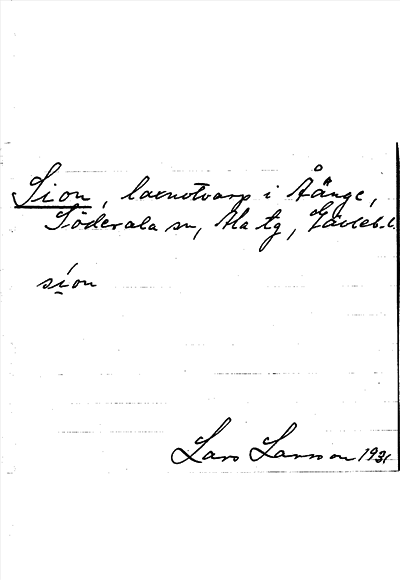 Sion, laxnotvarp i Åänge,
Söderala sn, Ala tg, Gävleb. l.
sion
Lars Larsson 1931